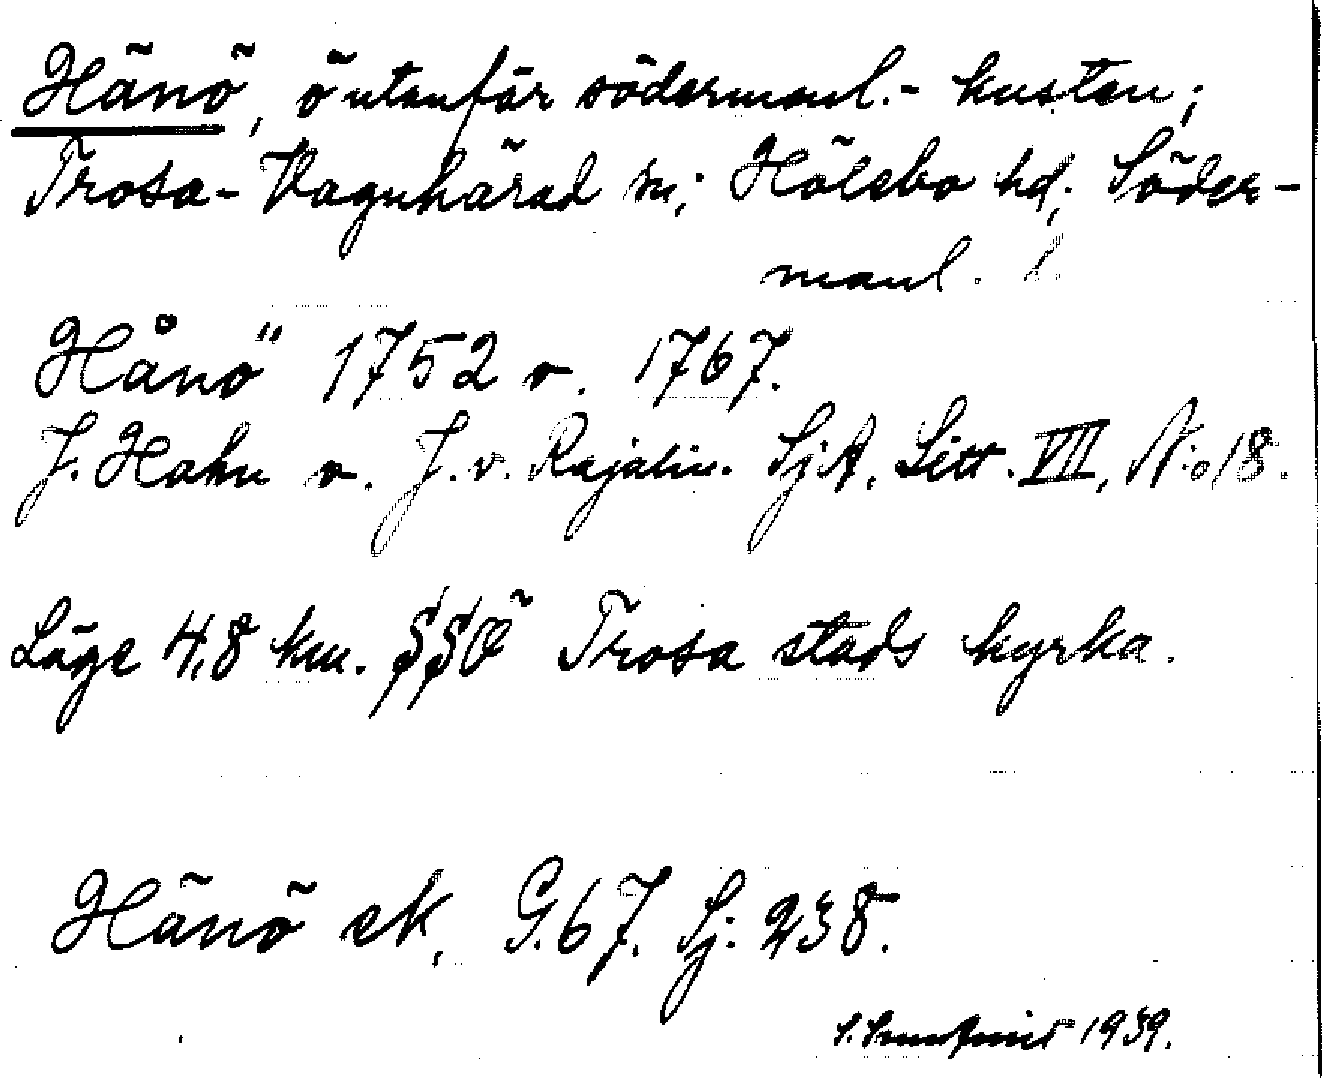 Hänö, ö utanför södermanl.- kusten;
Trosa-Vagnhärad sn; Hölebo hd; Söder-
manl. l.
Hånö 1752 o. 1767.
J. Hahn o. J. v. Rajalin. SjA, Litt. VII, N:o 18.
Läge 4,8 km. SSÖ Trosa stads kyrka.
Hänö ek, G.67. Sj. 238.
S. 1939.